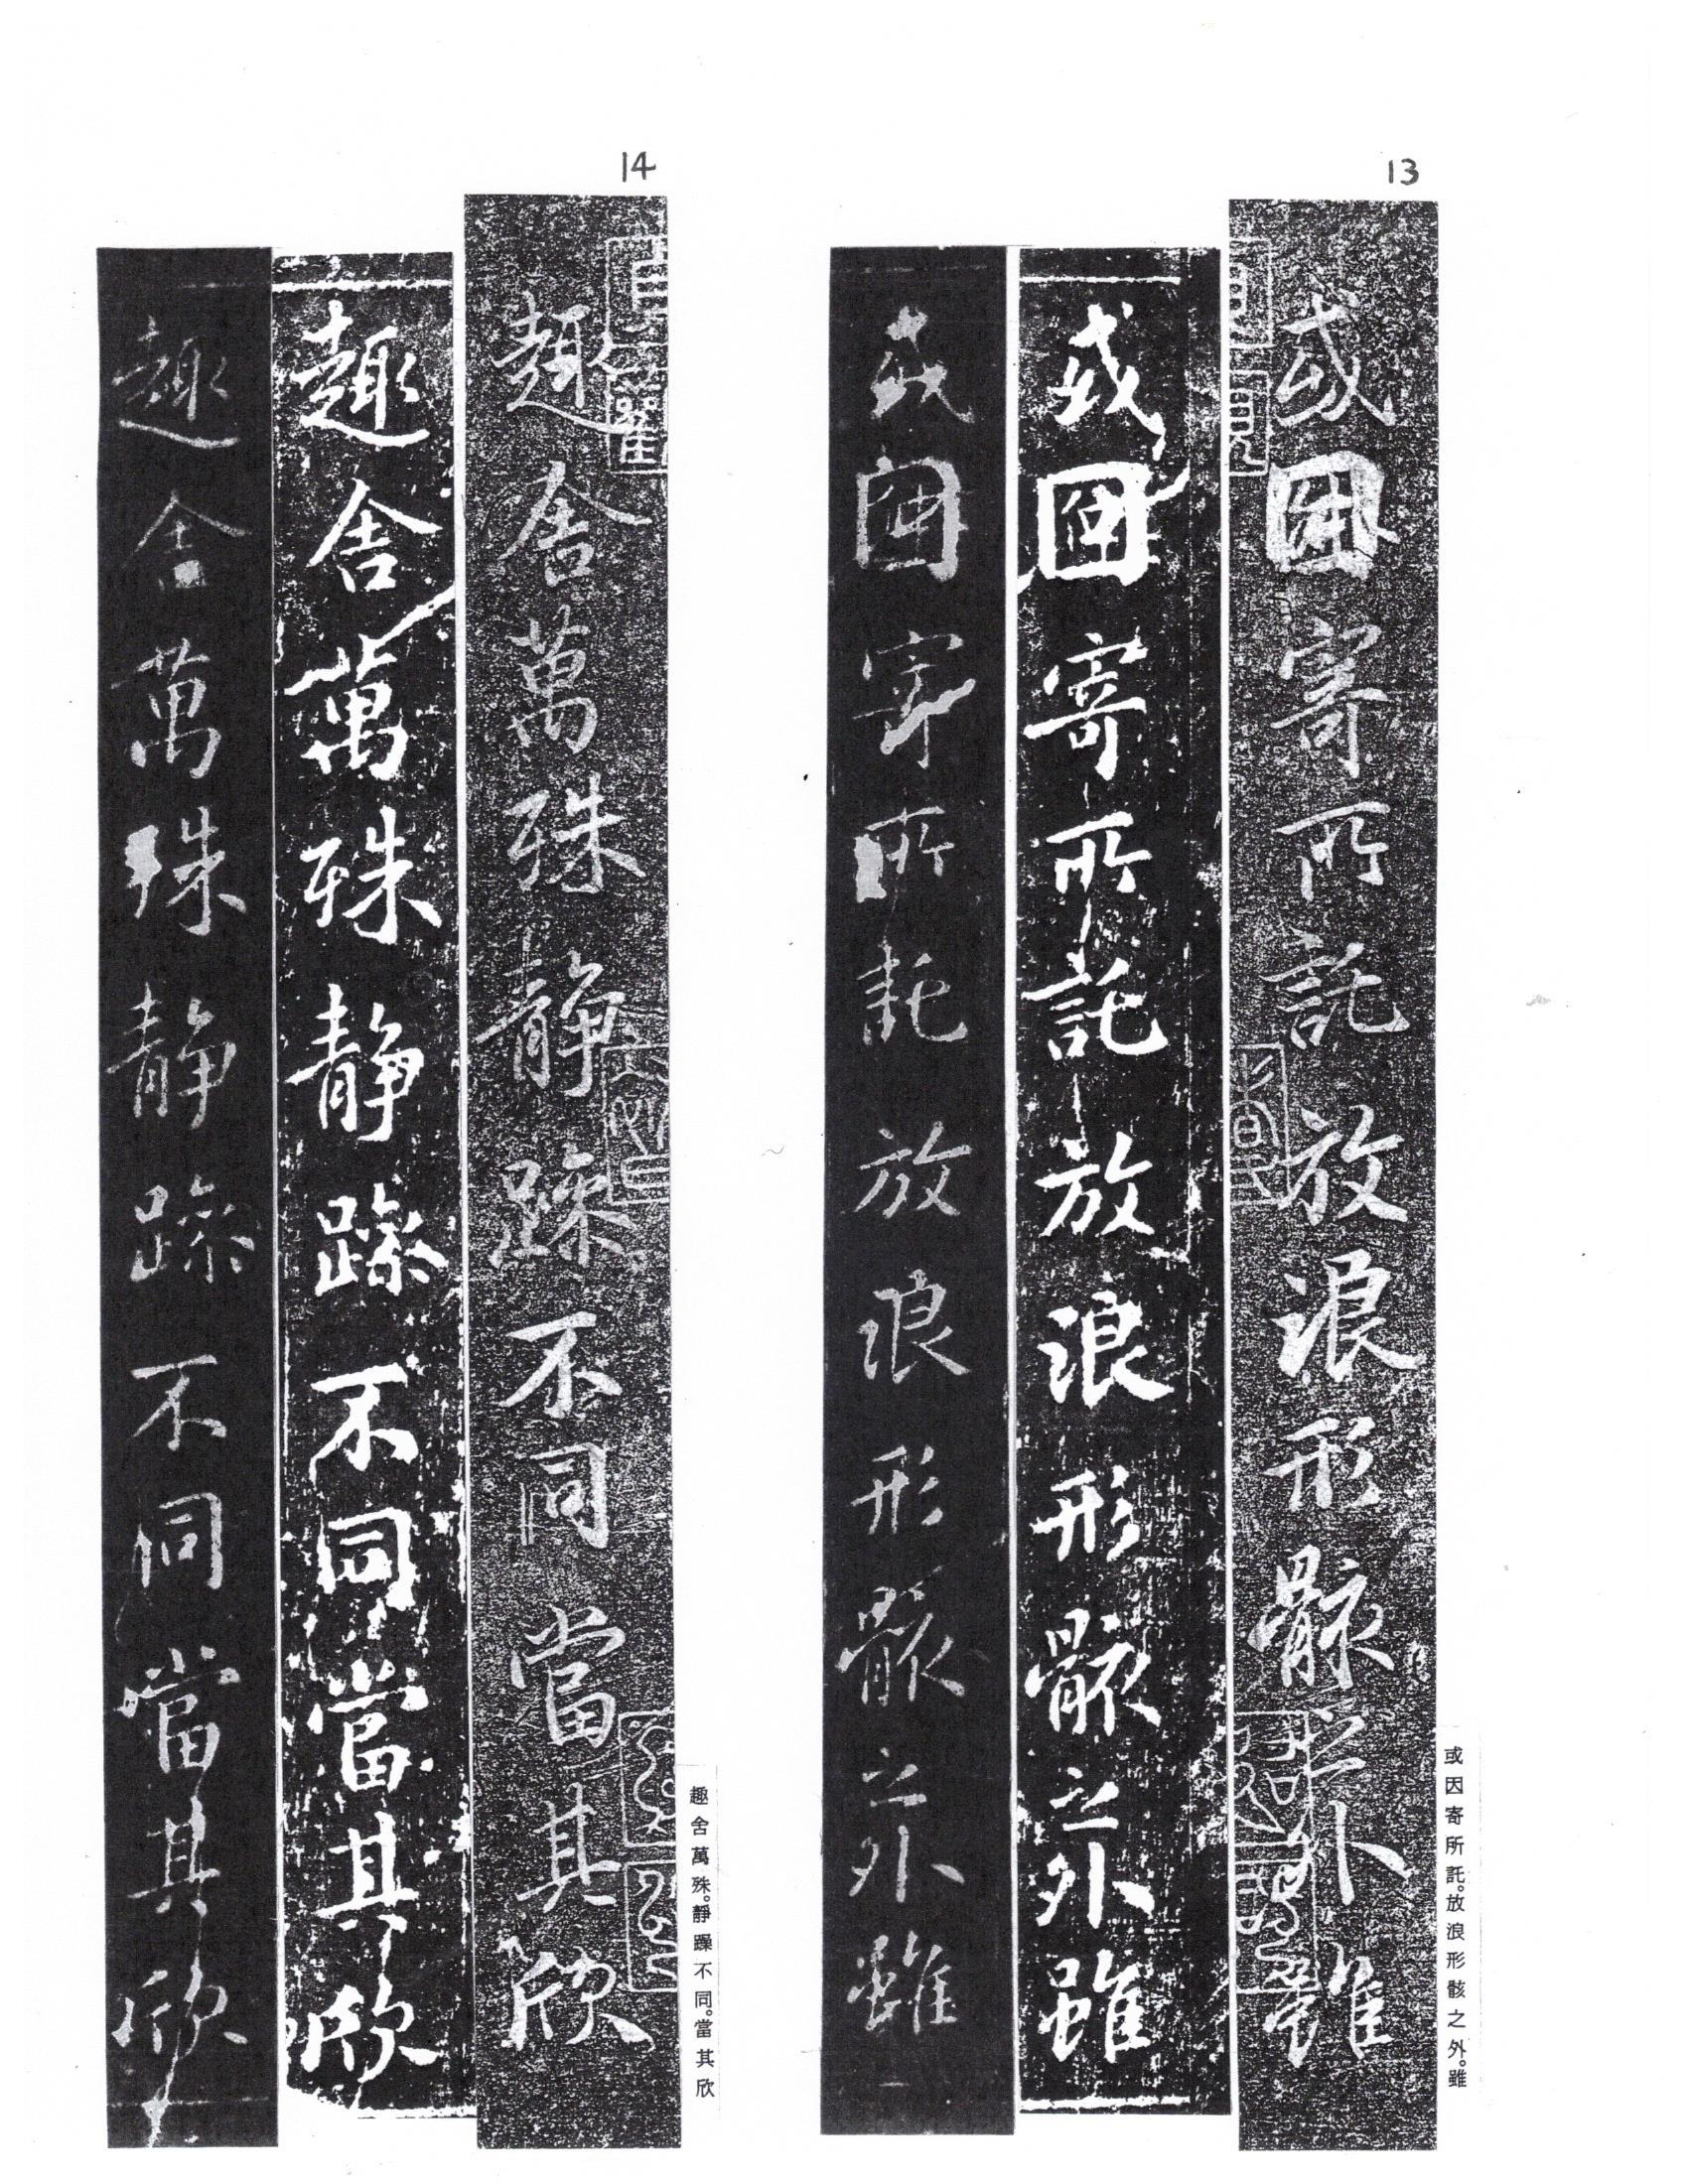 13
或因寄所託放浪形骸之外雖
或因寄所託放浪形骸之外雖
或因寄所託放浪形骸之外雖
或因寄所託。放浪形骸之外。雖
14
趣舎萬殊静躁不同當其欣
趣舎萬殊静躁不同當其欣
趣舎萬殊静躁不同當其欣
趣舍萬殊。靜躁不同。當其欣